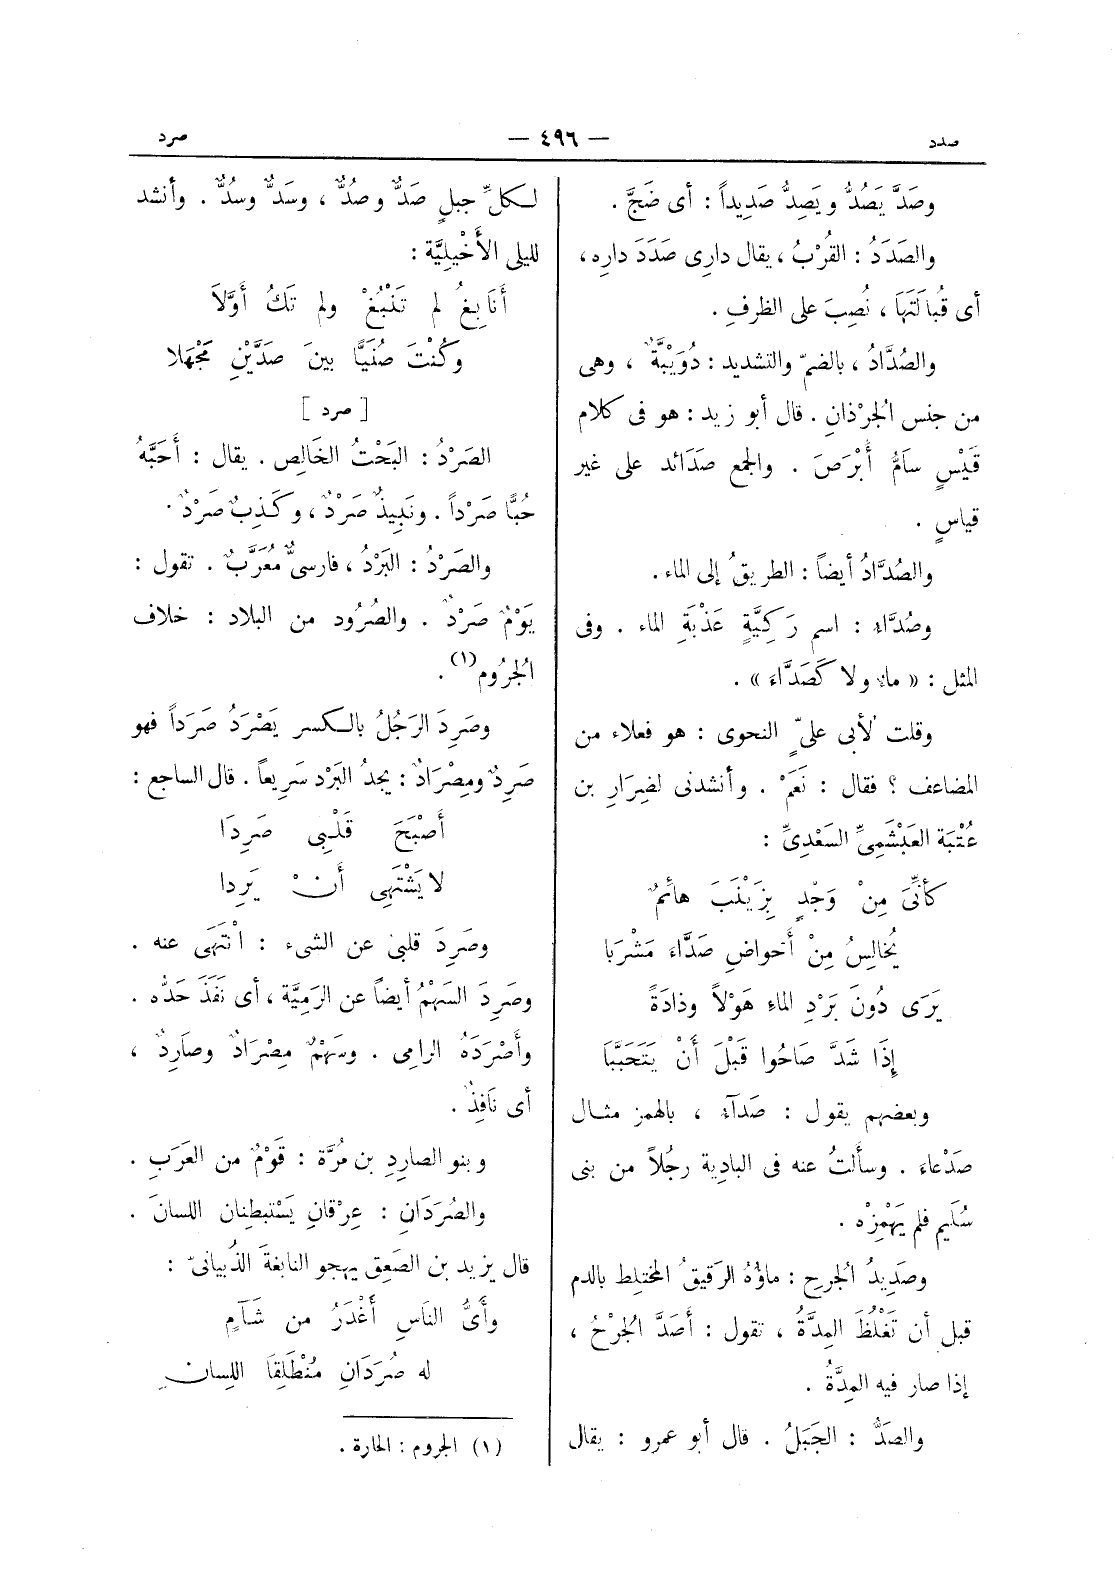 صدد — ٤٩٦ — صرد
وصَدَّ يَصُدُّ ويَصِدُّ صَدِيداً : أى ضَجَّ .
والصَدَدُ : القُرْبُ ، يقال دارى صَدَدَ دارِه ،
أى قُبَالَتَهَا ، نُصِبَ على الظرفِ .
والصُدَّادُ ، بالضمّ والتشديد : دُوَيْبَّةٌ ، وهى
من جنس الجِرْذانِ . قال أبو زيد : هو فى كلام
قَيْسٍ سَامُّ أَبْرَصَ . والجمع صَدَائد على غير
قياسٍ .
والصُدَّادُ أيضاً : الطريقُ إلى الماء .
وصُدَّاء : اسم رَكِيَّةٍ عَذْبَةِ الماء . وفى
المثل : « ماءٌ ولا كَصَدَّاءَ » .
وقلت لأبى علىٍّ النحوى : هو فعلاء من
المضاعف ؟ فقال : نَعَمْ . وأنشدنى لضِرَارِ بن
عُتْبَة العَبْشَمِىِّ السَعْدِىِّ :
كأَنِّىَ مِنْ وَجْدٍ بِزَيْنَبَ هائمٌ
يُخَالِسُ مِنْ أَحْواضِ صَدَّاءَ مَشْرَبا
يَرَى دُونَ بَرْدِ الماءِ هَوْلاً وذادَةً
إِذَا شَدَّ صَاحُوا قَبْلَ أَنْ يَتَحَبَّبَا
وبعضهم يقول : صَدآءِ ، بالهمز مثـال
صَدْعاءَ . وسألتُ عنه فى البادِية رجُلاً من بنى
سُلَيم فلم يَهْمِزْه .
وصَدِيدُ الجُرحِ : ماؤُهُ الرَقيقُ المختلِط بالدم
قبل أن تَغْلُظَ المِدَّةُ ، تقول : أَصَدَّ الجُرْحُ ،
إذا صار فيه المِدَّةُ .
والصَدُّ : الجَبَلُ . قال أبو عمرو : يقال
لـكلِّ جبلٍ صَدٌّ وصُدٌّ ، وسَدٌّ وسُدٌّ . وأنشد
لليلى الأَخْيلِيَّة :
أَنابِغُ لم تَنْبُغْ ولم تَكُ أَوَّلاَ
وكُنْتَ صُنَيًّا بينَ صَدَّيْنِ مَجْهَلا
[ صرد ]
الصَرْدُ : البَحْتُ الخَالِص . يقال : أَحَبَّهُ
حُبًّا صَرْداً . ونَبِيذٌ صَرْدٌ ، وكَذِبٌ صَرْدٌ .
والصَرْدُ : البَرْدُ ، فارسىٌّ مُعَرَّبٌ . تقول :
يَوْمٌ صَرْدٌ . والصُرُود من البلاد : خلاف
الجُرُوم (١) .
وصَرِدَ الرَجُلُ بالـكسر يَصْرَدُ صَرَداً فهو
صَرِدٌ ومِصْرَادٌ : يجدُ البَرْد سَريعاً . قال الساجع :
أَصْبَحَ قَلْبِى صَرِدَا
لا يَشْتَهِى أَنْ يَرِدا
وصَرِدَ قلبىٰ عن الشىء : انْتَهَى عنه .
وصَرِدَ السَهْمُ أيضاً عن الرَمِيَّة ، أى نَفَذَ حَدُّه .
وأَصْرَدَهُ الرامِى . وسَهْمٌ مِصْرَادٌ وصَارِدٌ ،
أى نَافِذٌ .
وبنو الصارِدِ بن مُرَّة : قَوْمٌ من العَرَبِ .
والصُرَدَانِ : عِرْقانِ يَسْتبطِنان اللسانَ .
قال يزيد بن الصَعِق يهجو النابغةَ الذُبيانىّ :
وأَىُّ النَاسِ أَغْدَرُ من شَآمٍ
له صُرَدَانِ مُنْطَلِقَا اللِسانِ
(١) الجروم : الحارة .